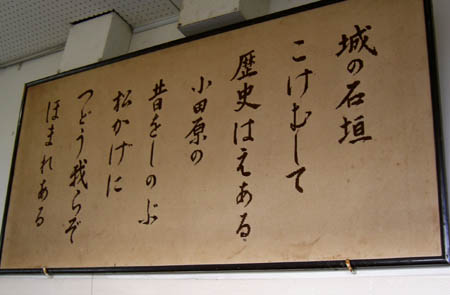 城の石垣
こけむして
歴史はえある
小田原の
昔をしのぶ
松かげに
つどう我らぞ
ほまれある